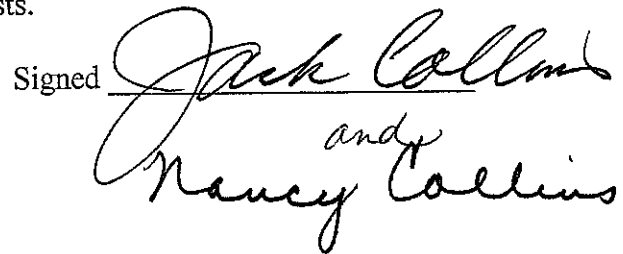 sts.
Signed Jack Collins
and
Nancy Collins